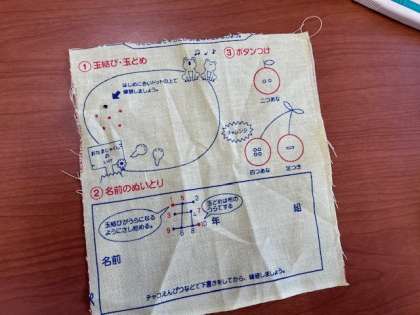 ① 玉結び・玉どめ
はじめに赤いドットの上で
練習しましょう。
おたまじゃくしの
いけ
③ ボタンつけ
二つあな
チャレンジ
四つあな
足つき
② 名前のぬいとり
玉結びがうらになる
ようにさし始める。
1 5
2
3
7
9 6 8 10
玉どめは布の
うらでする
年
組
名前
チャコえんぴつなどで下書きをしてから、練習しましょう。